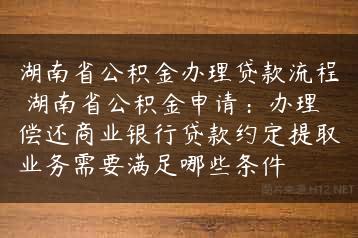 湖南省公积金办理贷款流程
湖南省公积金申请：办理
偿还商业银行贷款约定提取
业务需要满足哪些条件
图片来源 H12.NET